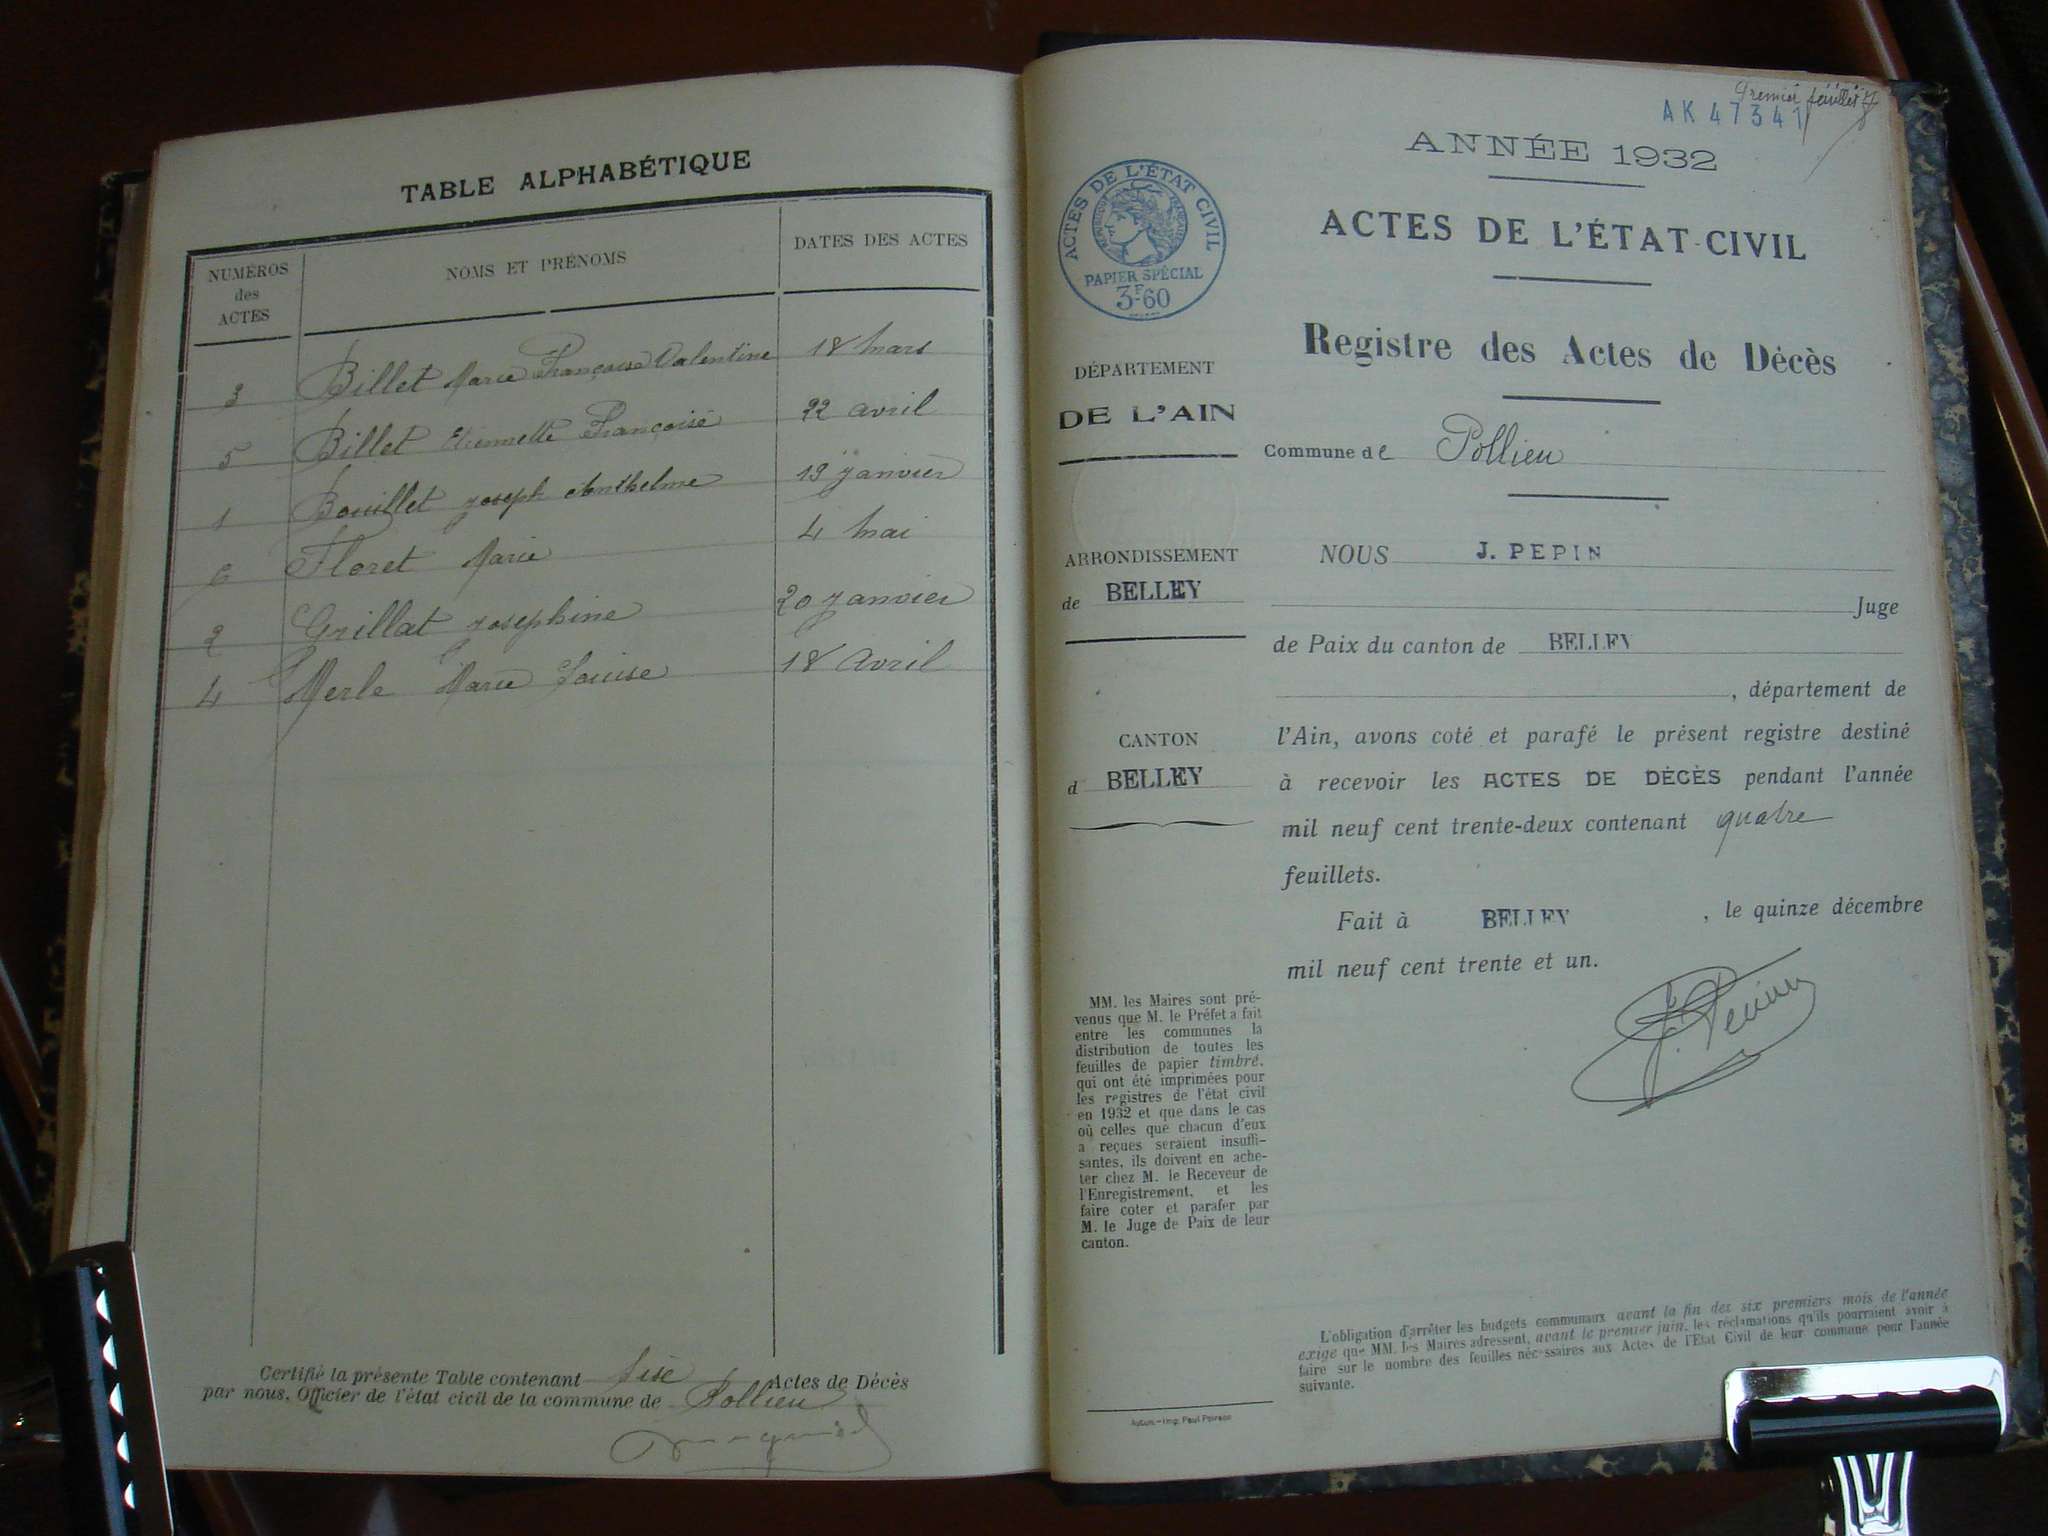 TABLE ALPHABÉTIQUE
NUMÉROS des ACTES
NOMS ET PRÉNOMS
DATES DES ACTES
3 Billet Marie Françoise Valentine 18 mars
5 Billet Etiennette Françoise 22 avril
1 Bouillet Joseph Anthelme 19 janvier
6 Floret Marie 4 mai
2 Grillat Josephine 20 janvier
4 Merle Marie Louise 18 avril
Certifié la présente Table contenant six Actes de Décès
par nous, Officier de l'état civil de la commune de Pollieu
Premier feuillet
AK 47341
ANNÉE 1932
ACTES DE L'ÉTAT CIVIL
PAPIER SPÉCIAL
3F60
ACTES DE L'ÉTAT-CIVIL
Registre des Actes de Décès
DÉPARTEMENT
DE L'AIN
Commune de Pollieu
ARRONDISSEMENT
de BELLEY
CANTON
d BELLEY
NOUS J. PEPIN
Juge
de Paix du canton de BELLEY
, département de
l'Ain, avons coté et parafé le présent registre destiné
à recevoir les ACTES DE DÉCÈS pendant l'année
mil neuf cent trente-deux contenant quatre
feuillets.
Fait à BELLEY , le quinze décembre
mil neuf cent trente et un.
J. Pepin
MM. les Maires sont pré-
venus que M. le Préfet a fait
entre les communes la
distribution de toutes les
feuilles de papier timbré,
qui ont été imprimées pour
les registres de l'état civil
en 1932 et que dans le cas
où celles que chacun d'eux
a reçues seraient insuffi-
santes, ils doivent en ache-
ter chez M. le Receveur de
l'Enregistrement, et les
faire coter et parafer par
M. le Juge de Paix de leur
canton.
L'obligation d'arrêter les budgets communaux avant la fin des six premiers mois de l'année
exige que MM. les Maires adressent, avant le premier juin, les réclamations qu'ils pourraient avoir à
faire sur le nombre des feuilles nécessaires aux Actes de l'Etat Civil de leur commune pour l'année
suivante.
Autun. - Imp. Paul Poirson